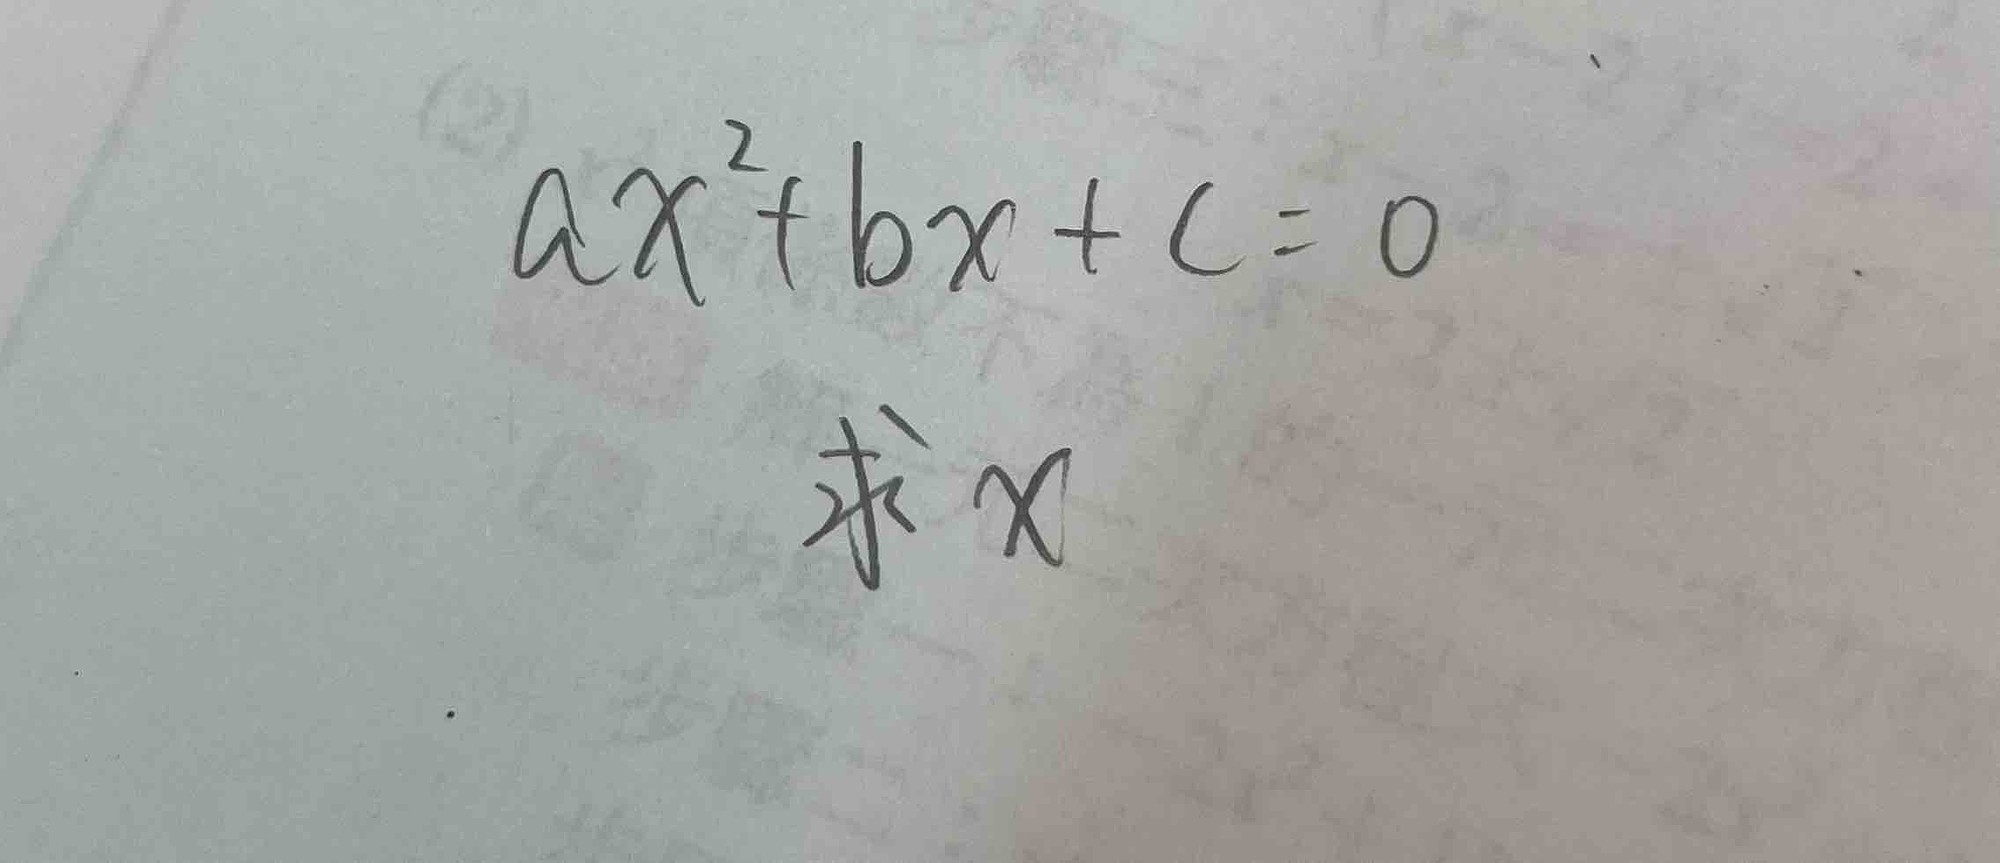 ax²+bx+c=0
求x